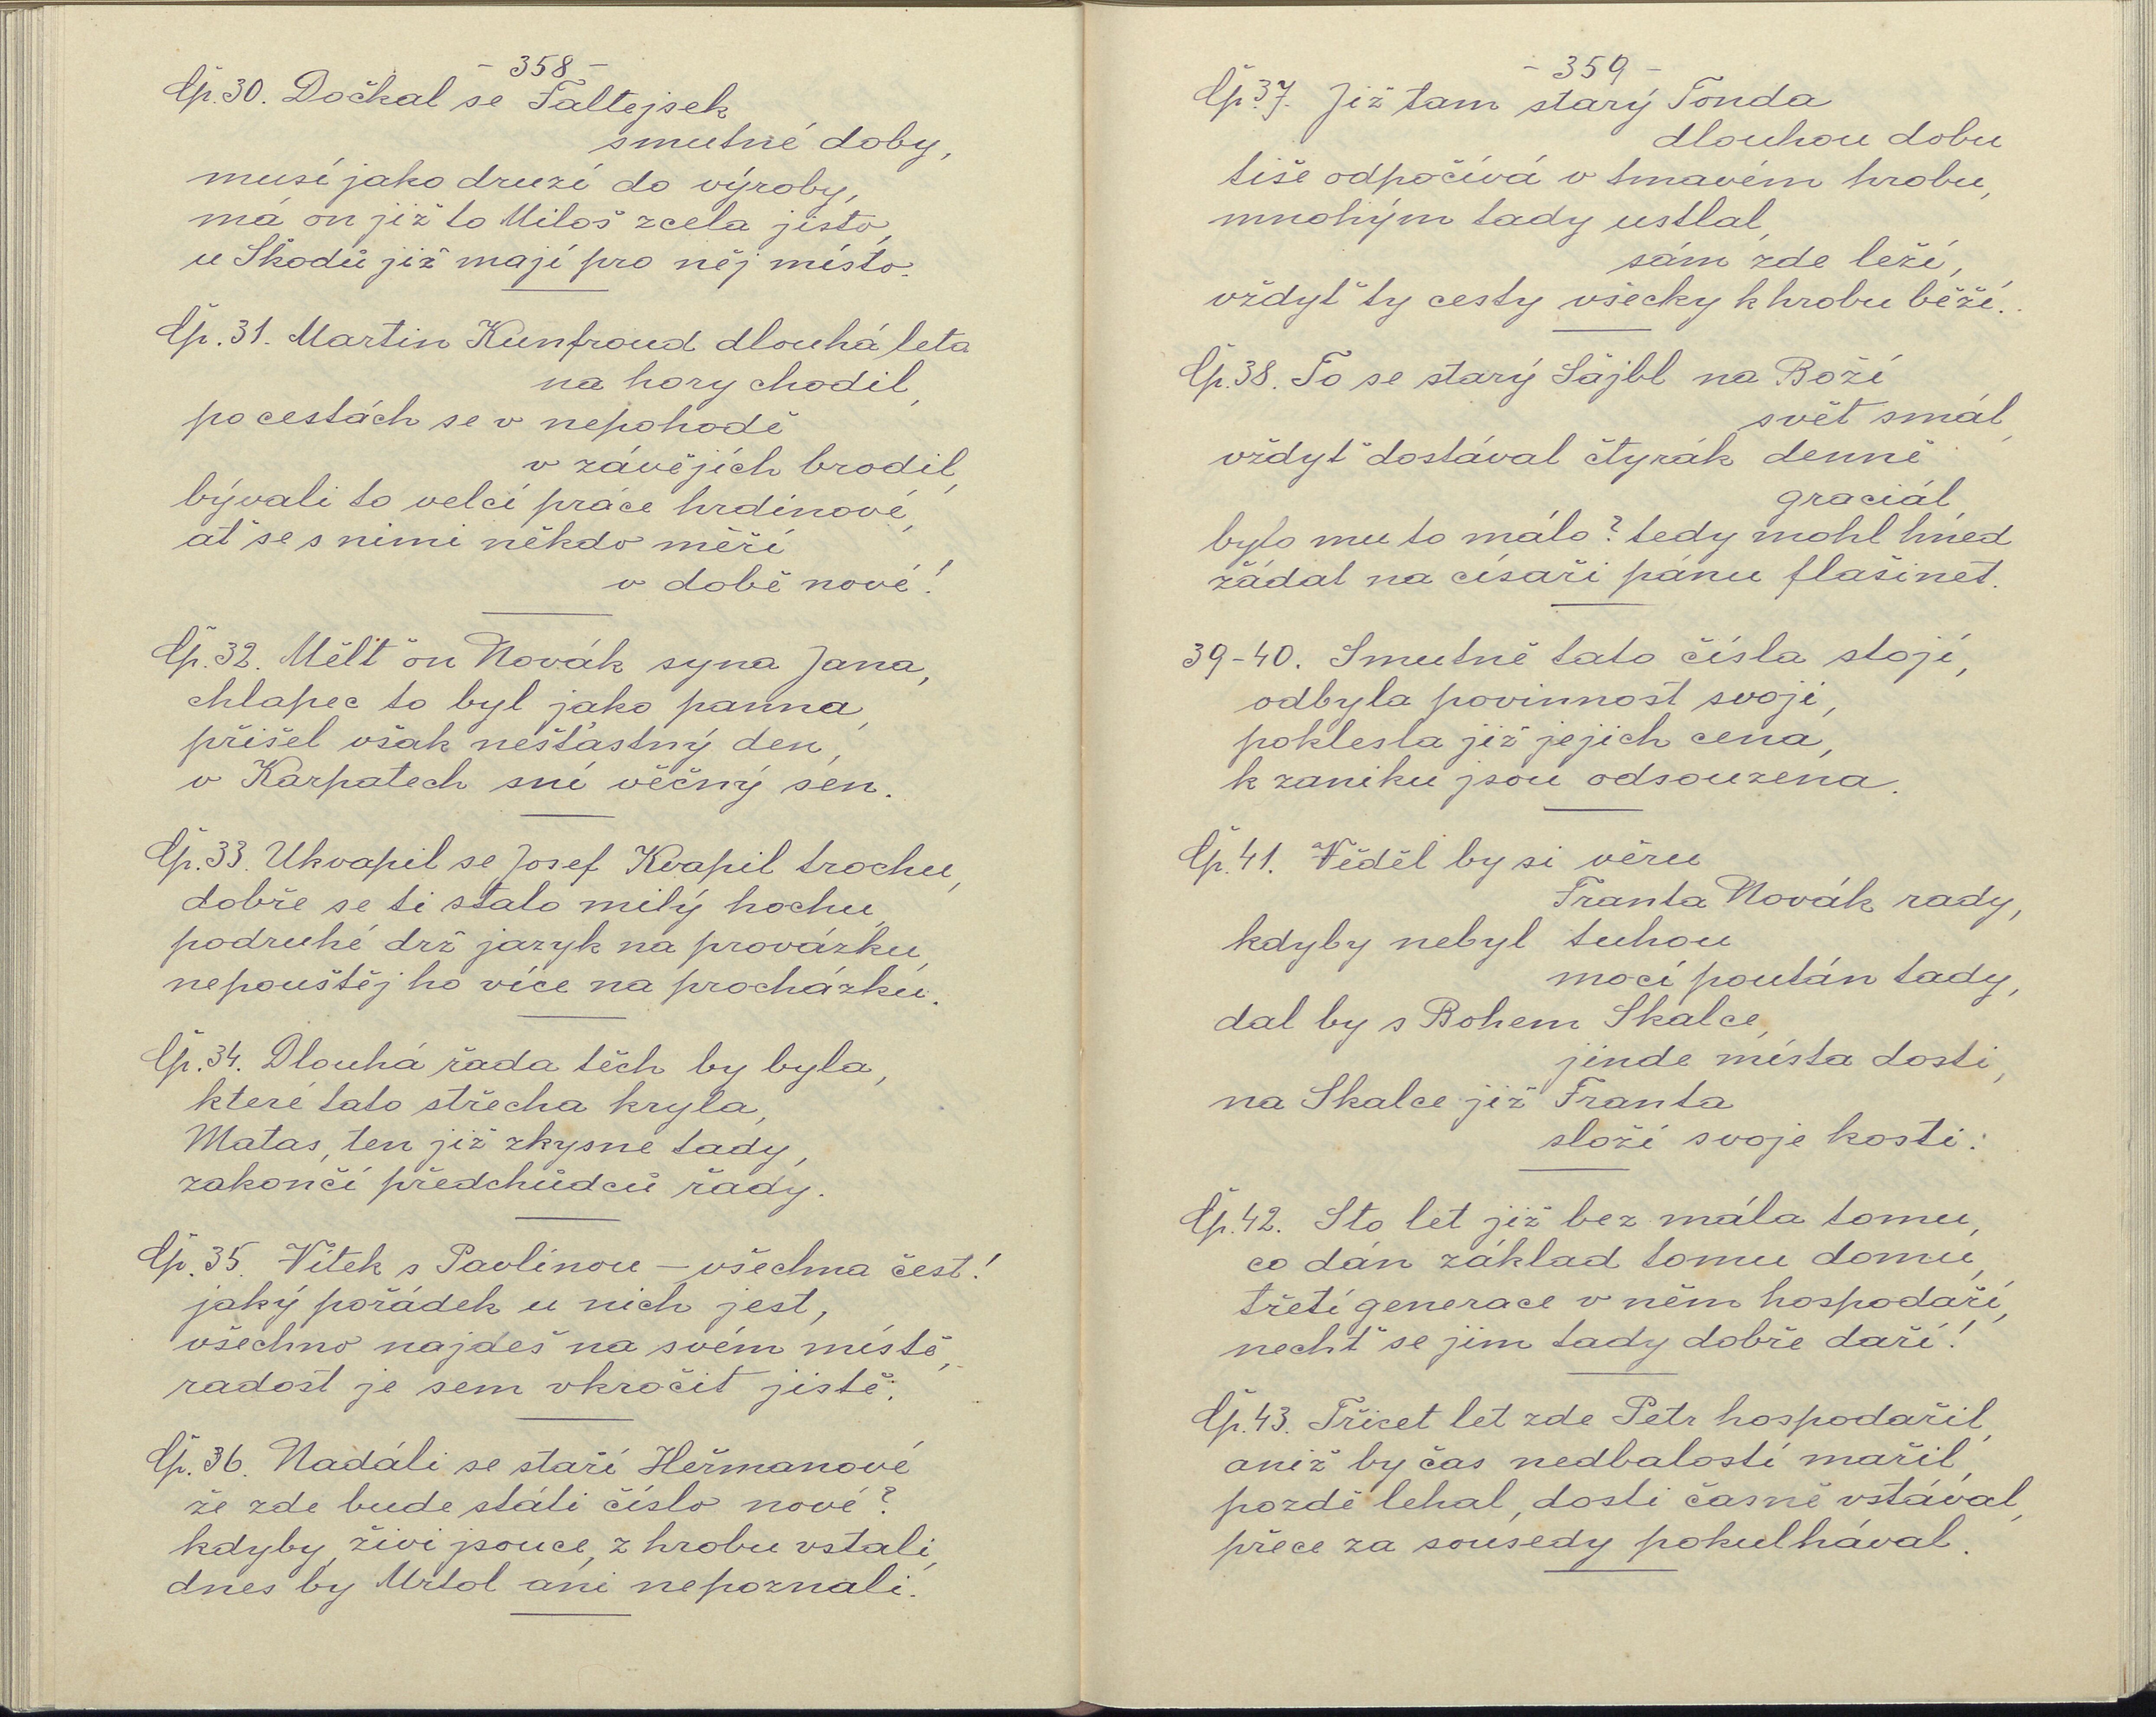 - 358 -
Čp. 30. Dočkal se Faltejsek
smutné doby,
musí jako druzí do výroby,
má on již to Miloš zcela jisto,
u Škodů již mají pro něj místo.
Čp. 31. Martin Kunfroud dlouhá leta
na hory chodil,
po cestách se v nepohodě
v závějích brodil,
bývali to velcí práce hrdinové,
ať se s nimi někdo měří
v době nové!
Čp. 32. Mělť on Novák syna Jana,
chlapec to byl jako panna,
přišel však nešťastný den,
v Karpatech sní věčný sen.
Čp. 33. Ukvapil se Josef Kvapil trochu,
dobře se ti stalo milý hochu,
podruhé drž jazyk na provázku,
nepouštěj ho více na procházku.
Čp. 34. Dlouhá řada těch by byla,
které tato střecha kryla,
Matas, ten již zkysne tady,
zakončí předchůdců řady.
Čp. 35. Vítek s Pavlínou - všechna čest!
jaký pořádek u nich jest,
všechno najdeš na svém místě,
radost je sem vkročit jistě.
Čp. 36. Nadáli se staří Heřmanové
že zde bude státi číslo nové?
kdyby, živi jsouce, z hrobu vstali,
dnes by Mrtol ani nepoznali.
- 359 -
Čp. 37. Již tam starý Tonda
dlouhou dobu
tiše odpočívá v tmavém hrobu,
mnohým tady ustlal,
sám zde leží,
vždyť ty cesty všecky k hrobu běží.
Čp. 38. To se starý Šájbl na Boží
svět smál,
vždyť dostával čtyrák denně
graciál,
bylo mu to málo? tedy mohl hned
žádat na císaři pánu flašinet.
39-40. Smutně tato čísla stojí,
odbyla povinnost svoji,
poklesla již jejich cena,
k zaniku jsou odsouzena.
Čp. 41. Věděl by si věru
Franta Novák rady,
kdyby nebyl tuhou
mocí poután tady,
dal by s Bohem Skalce,
jinde místa dosti,
na Skalce již Franta
složí svoje kosti.
Čp. 42. Sto let již bez mála tomu,
co dán základ tomu domu,
třetí generace v něm hospodaří,
nechť se jim tady dobře daří!
Čp. 43. Třicet let zde Petr hospodařil,
aniž by čas nedbalostí mařil,
pozdě lehal, dosti časně vstával,
přece za sousedy pokulhával.